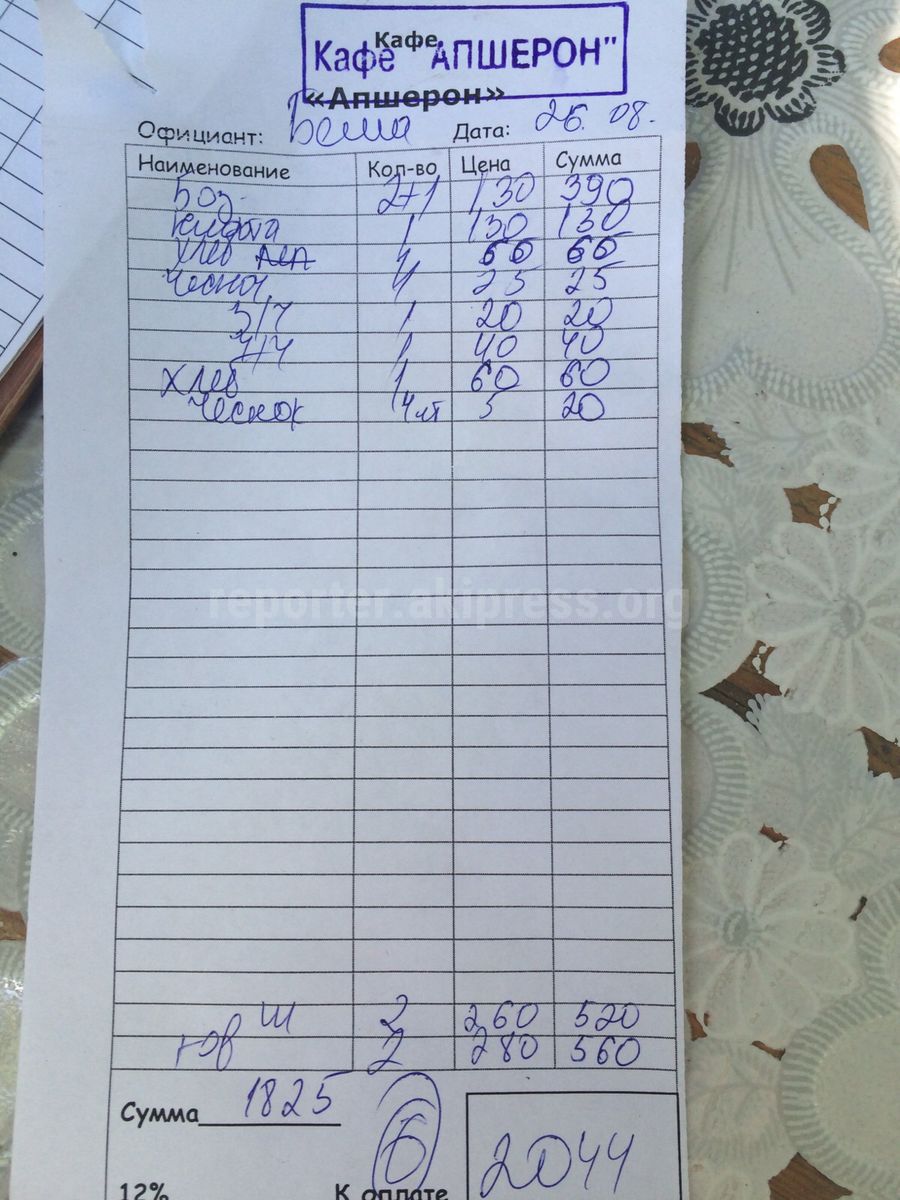 Кафе
Кафе "АПШЕРОН"
«Апшерон»
Официант: Бема Дата: 26.08.
Наименование Кол-во Цена Сумма
Боз 2+1 130 390
1 130 130
Хлеб 60 60
Чеснок 4 25 25
З/Ч 1 20 20
1 40 40
Хлеб 1 60 60
Чеснок 4 шт 5 20
reporter.akipress.org
Ш 2 260 520
гов 2 280 560
Сумма 1825
6
2044
12% К оплате